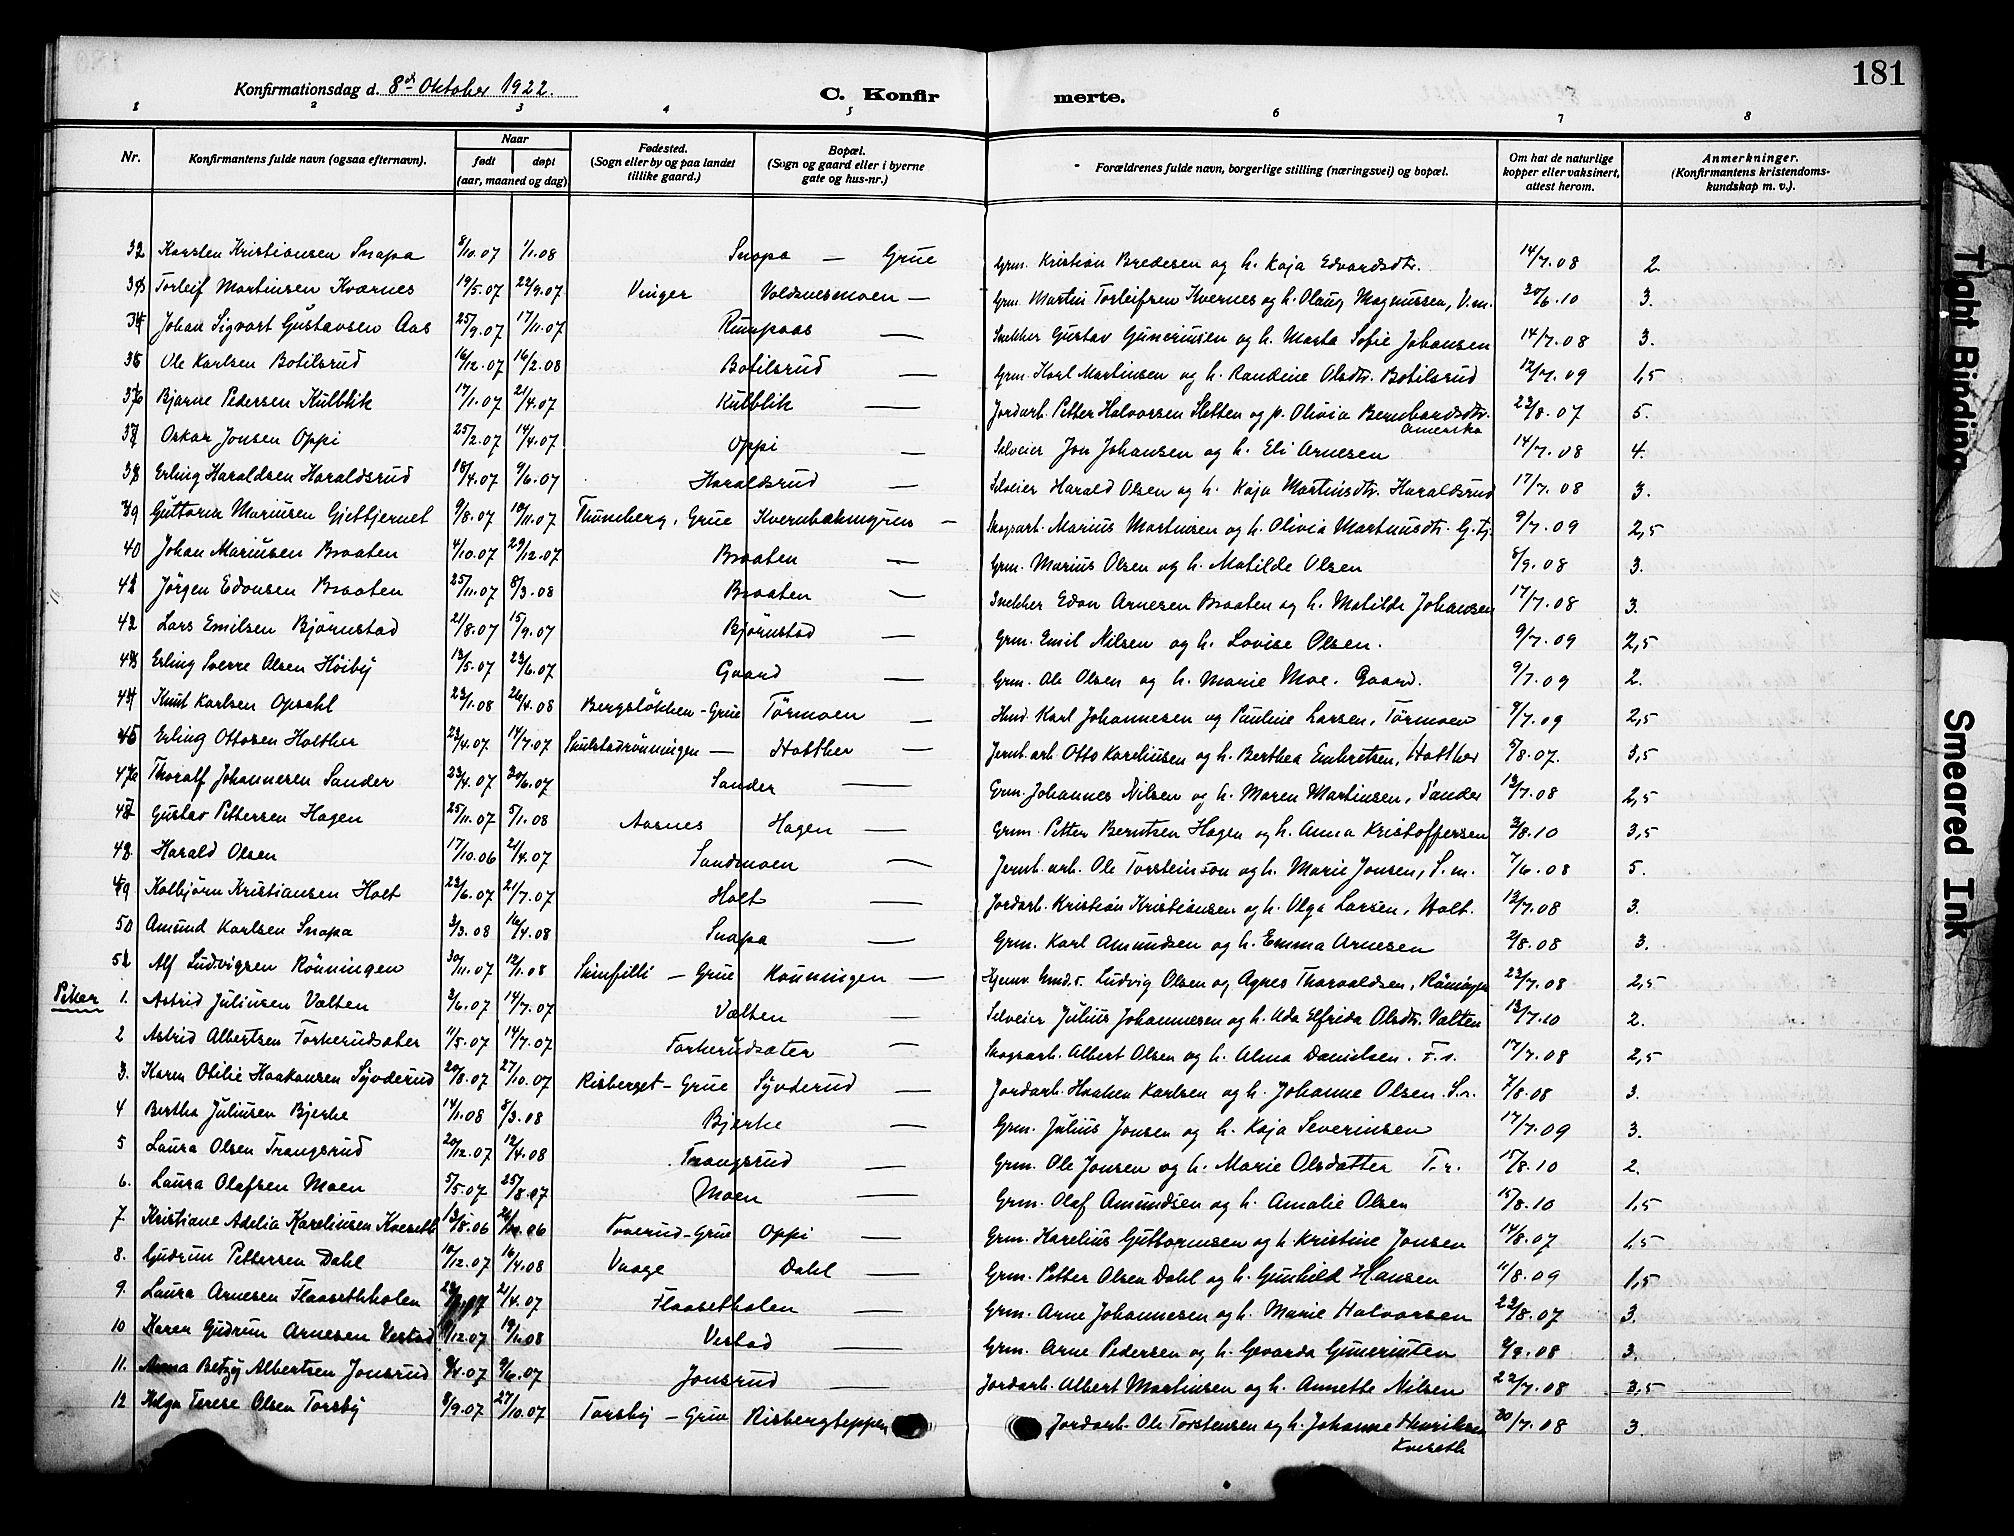 181
Konfirmationsdag d. 8de Oktober 1922.
C. Konfir merte.
1 2 3 4 5 6 7 8
Nr. Konfirmantens fulde navn (ogsaa efternavn). Naar født døpt (aar, maaned og dag) Fødested. (Sogn eller by og paa landet tillike gaard.) Bopæl. (Sogn og gaard eller i byerne gate og hus-nr.) Forældrenes fulde navn, borgerlige stilling (næringsvei) og bopæl. Om hat de naturlige kopper eller vaksinert, attest herom. Anmerkninger. (Konfirmantens kristendoms-kundskap m. v.).
32 Karsten Kristiansen Snapa 8/10.07 1/1.08 Snapa — Grue Grm. Kristian Bredesen og h. Kaja Edvardsdtr. 14/7.08 2
33 Torleif Martinsen Kvernes 19/5.07 22/9.07 Vinger Voldnesmoen — Grm. Martin Torleifsen Kvernes og h. Olaug Magnussen, V.m. 30/6.10 3.
34 Johan Sigvart Gustavsen Aas 25/9.07 17/11.07 Rumpaas — Snekker Gustav Guneriusen og h. Marta Sofie Johansen 14/7.08 3.
35 Ole Karlsen Botilsrud 16/12.07 16/2.08 Botilsrud — Grm. Karl Martinsen og h. Randine Olsdtr. Botilsrud 12/7.09 1,5
36 Bjarne Pedersen Kulblik 17/1.07 21/4.07 Kulblik — Jordarb. Petter Halvorsen Sletten og p. Olivia Bernhardsdtr. Amerika 23/8.07 5.
37 Oskar Jonsen Oppi 25/2.07 14/4.07 Oppi — Selveier Jon Johansen og h. Eli Arnesen 14/7.08 4.
38 Erling Haraldsen Haraldsrud 18/4.07 9/6.07 Haraldsrud — Selveier Harald Olsen og h. Kaja Martinsdtr. Haraldsrud 17/7.08 3.
39 Guttorm Mariusen Gjetkjernet 9/8.07 10/11.07 Thuneberg, Grue — Skogsarb. Marius Martinsen og h. Olivia Martinusdtr. G.tj. 9/7.09 2,5
40 Johan Mariusen Braaten 4/10.07 29/12.07 Braaten — Grm. Marius Olsen og h. Matilde Olsen 8/9.08 3.
41 Jörgen Edvinsen Braaten 25/11.07 8/3.08 Braaten — Snekker Edvin Arnesen Braaten og h. Matilde Johansen 17/7.08 3.
42 Lars Emilsen Björnstad 21/8.07 15/9.07 Björnstad — Grm. Emil Nilsen og h. Lovise Olsen. 9/7.09 2,5
43 Erling Sverre Olsen Höiby 13/5.07 23/6.07 Gaard — Grm. Ole Olsen og h. Marie Moe. Gaard. 9/7.09 2.
44 Knut Karlsen Opsahl 23/1.08 26/4.08 Bergslökken - Grue Törmoen — Hmd. Karl Johannesen og Pauline Larsen, Törmoen 9/7.09 2,5
45 Erling Ottosen Holther 23/4.07 14/7.07 Skulstadrönningen — Holther — Jernb. arb. Otto Kareliusen og h. Berthea Embretsen, Holther 5/8.07. 3,5
46 Thoralf Johannesen Sander 23/4.07 30/6.07 Sander — Grm. Johannes Nilsen og h. Maren Martinsen, Sander 13/7.08 2,5
47 Gustav Pettersen Hagen 25/11.07 5/1.08 Aasnes Hagen — Grm. Petter Berntsen Hagen og h. Anna Kristoffersen 3/8.10 3,5
48 Harald Olsen 17/10.06 21/4.07 Sandmoen — Jernb. arb. Ole Torsteinson og h. Marie Jonsen, S.m. 7/6.08 5.
49 Kolbjörn Kristiansen Holt 23/6.07 21/7.07 Holt — Jordarb. Kristian Kristiansen og h. Olga Larsen, Holt. 12/7.08 3.
50 Amund Karlsen Snapa 3/3.08 16/4.08 Snapa — Grm. Karl Amundsen og h. Emma Arnesen 2/8.08 3.
51 Alf Ludvigsen Rönningen 30/11.07 12/1.08 — Grue Rönningen — Ludvig Olsen og Agnes Thorvaldsen, Röningen 23/7.08 2,5
Piker 1. Astrid Juliusen Valten 3/6.07 14/7.07 Valten — Selveier Julius Johannesen og h. Uda Elfrida Olsdtr. Valten 13/7.10 2.
2 Astrid Albertsen Torkerudsæter 11/5.07 14/7.07 Torkerudsæter — Skogsarb. Albert Olsen og h. Alma Danielsen. T.s. 17/7.08 2,5
3. Karen Otilie Haakonsen Syvderud 20/8.07 27/10.07 Risberget - Grue Syvderud — Jordarb. Haaken Karlsen og h. Johanne Olsen. S.r. 7/8.08 3.
4 Bertha Juliusen Bjerke 14/1.08 8/3.08 Bjerke — Grm. Julius Jonsen og h. Kaja Severinsen 17/7.09 3.
5 Laura Olsen Trangsrud 20/12.07 12/4.08 Trangsrud — Grm. Ole Jonsen og h. Marie Olsdatter T.r. 15/8.10 2.
6. Laura Olafsen Moen 5/5.07 25/8.07 Moen — Grm. Olaf Amundsen og h. Amalie Olsen 15/8.10 1,5
7. Kristiane Adelia Kareliusen Kveseth 13/8.06 26/10.06 Tverud-Grue Oppi — Grm. Karelius Guttormsen og h. Kristine Jonsen 14/8.07 1,5
8. Gudrun Pettersen Dahl 10/12.07 16/4.08 Vaage Dahl — Grm. Petter Olsen Dahl og h. Gunhild Hansen 11/8.09 1,5
9. Laura Arnesen Flaasethholen 21/4.07 Flaasetholen — Grm. Arne Johannesen og h. Marie Halvorsen 22/8.07 3.
10 Karen Gudrun Arnesen Vestad 9/12.07 19/1.08 Vestad — Grm. Arne Pedersen og h. Gevarda Guneriusen 9/8.08 3.
11. Anna Betzy Albertsen Jonsrud 9/4.07 9/6.07 Jonsrud — Jordarb. Albert Martinsen og h. Annette Nilsen 22/7.08 3,5
12 Helga Terese Olsen Torsby 8/9.07 27/10.07 Torsby — Grue Risbergteppen Jordarb. Ole Torstensen og h. Johanne Henriksen Kveseth 30/7.08 3.
Tight Binding
Smeared Ink